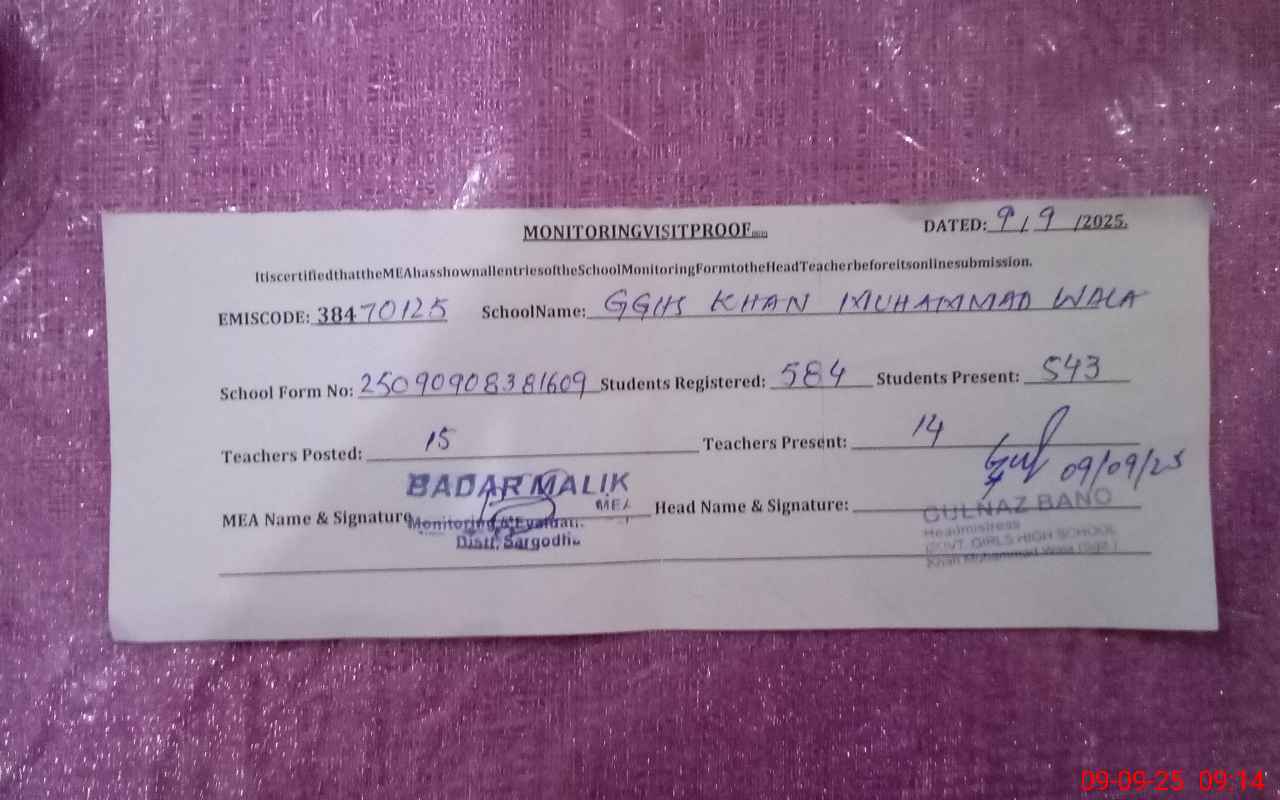 MONITORINGVISITPROOF
DATED: 9/9/2025.
ItiscertifiedthattheMEAhasshownallentriesoftheSchoolMonitoringFormtotheHeadTeacherbeforeitsonlinesubmission.
EMISCODE: 38470125 SchoolName: GGHS KHAN MUHAMMAD WALA
School Form No: 25090908381609 Students Registered: 584 Students Present: 543
Teachers Posted: 15 Teachers Present: 14
09/09/25
BADAR MALIK
MEA
MEA Name & Signature Head Name & Signature:
Monitoring & Evaluan.
Distt, Sargodha
GULNAZ BANO
Headmistress
GOVT. GIRLS HIGH SCHOOL
Khan Muhammad Wala (Sgd.)
09-09-25 09:14